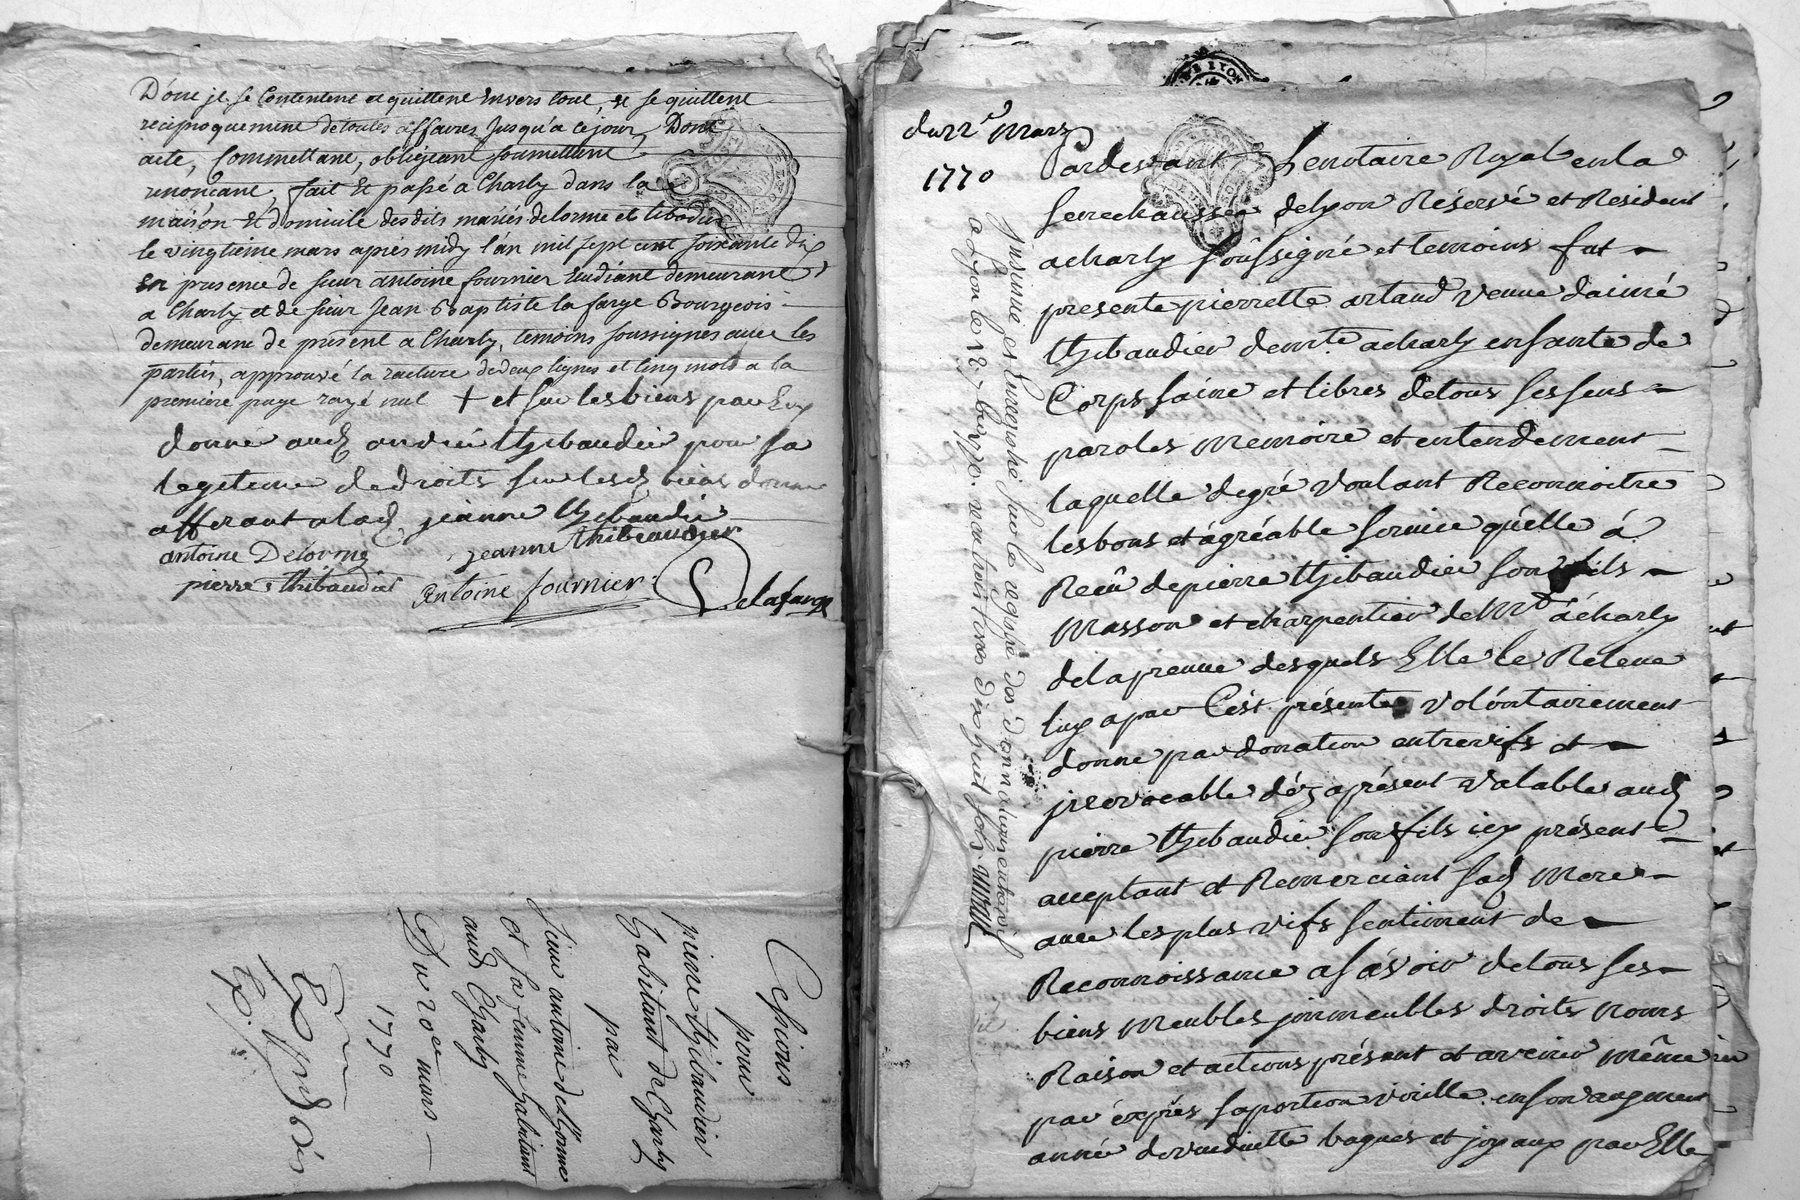 Dont jl se Contentent et quittent Envers tout, et se quittent
reciproquement detoutes affaires Jusqu'a cejour, Dont
acte, Commettant, obligeant soumettent
renonçant, fait Et passé a Charly dans la
maison Et domicile desdits mariés delorme et tibaudier
le vingtieme mars apres midy l'an mil sept cent soixante dix
En presence de sieur antoine fournier Etudiant demeurant
a Charly et de sieur Jean Baptiste la farge Bourgeois
demeurant de présent a Charly, temoins soussignes avec les
parties, approuvé la rature dedeux lignes et cinq mots a la
première page rayé nul + et sur les biens par Eux
donné aud andré thibaudier pour sa
legitime de droits sur lesd biens
afferant alad jeanne thibaudier
antoine Delorme jeanne thibeaudier
pierre thibaudier Antoine fournier Delafarge
Cessions
pour
pierre thibaudier
habitant de Charly
par
sieur antoine delorme
et sa femme habitant
aud Charly
Du 20e mars
1770
Exp.
du 22e Mars
1770
Pardevant Le notaire Royal en la
senechaussée delyon Réservé et Resident
acharly soussigné et temoins fut
presente pierrette artaud veuve daimé
thibaudier demte acharly enfante de
Corps saine et libres detous ses sens
paroles memoire et entendement
laquelle degré voulant Reconnoitre
lesbons et agréable service qu'elle á
Recû depierre thibaudier son fils
Masson et charpentier de Mtd ácharly
delapreuve desquels Elle le Releve
luy a par Cést présente volontairement
donne par donation entrevifs et
jrrevocable déz aprésent valable aud
pierre thibaudier son fils icy présent
acceptant et Remerciant sad Mere
avec les plus vifs sentiment de
Reconnoissance asávoir detous ses
biens Meubles jmmeubles droits noms
Raison et actions présent et avenir même
par éxprés saportion virille enson augment
année deviduitte bagues et joyaux par Elle
jnsinué et Enregistré sur le registre des donnations entrevif
a Lyon le